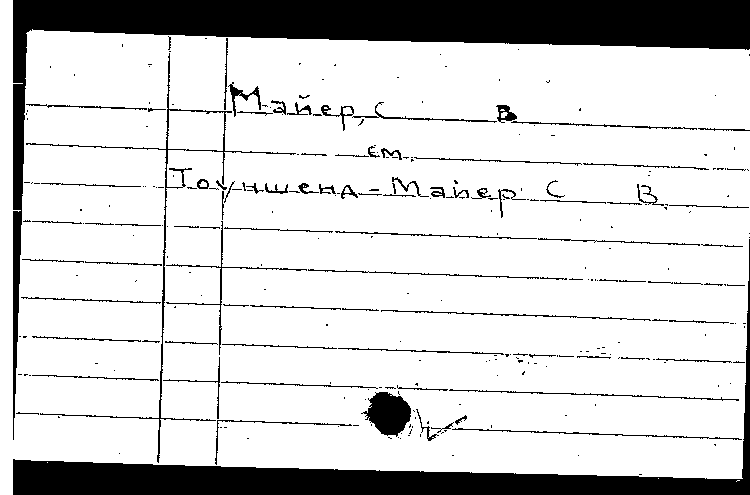 Майер, С В
см.
Тоуншенд - Майер С В.